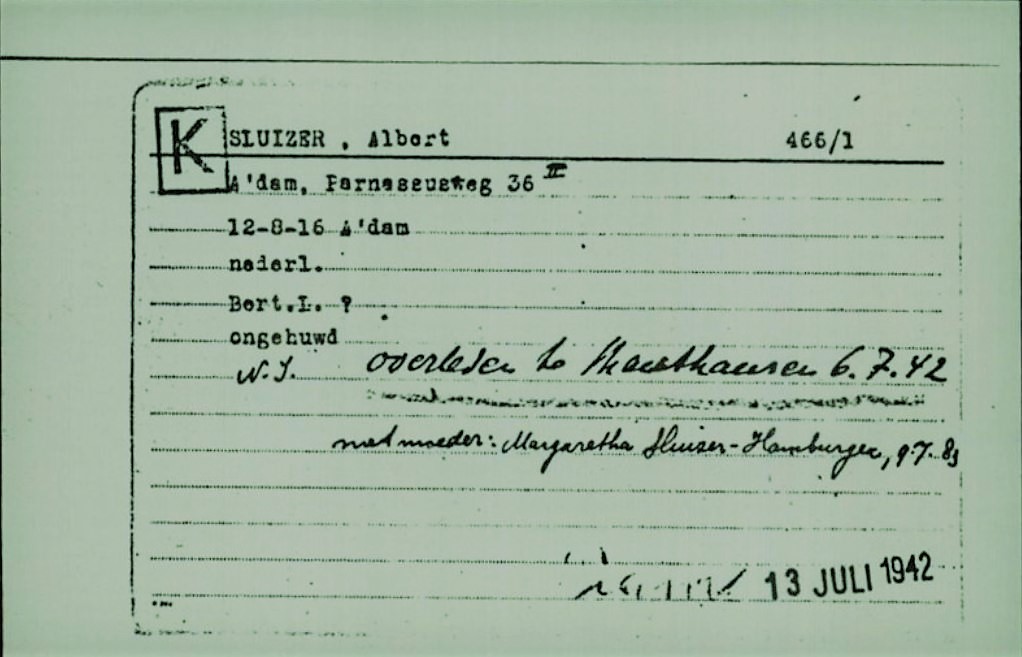 K SLUIZER, Albert 466/1
A'dam, Parnassusweg 36 II
12-8-16 A'dam
nederl.
Bert.L. ?
ongehuwd
N.I. overleden te Mauthausen 6.7.42
met moeder: Margaretha Sluizer-Hamburger, 9.7.83
13 JULI 1942